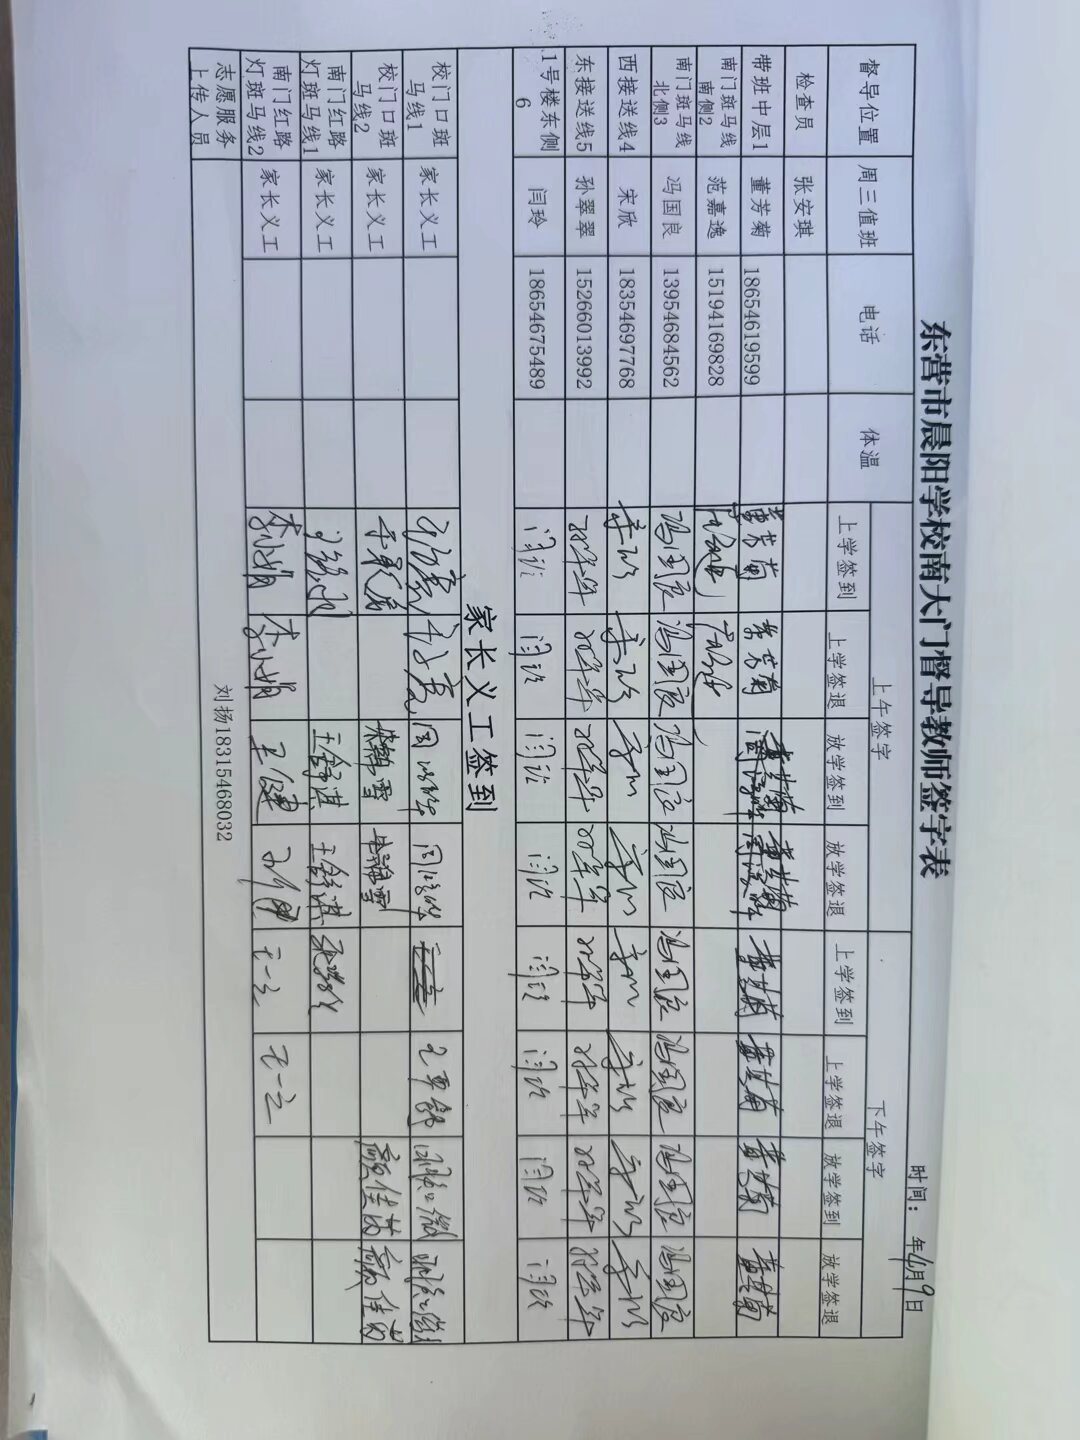 东营市晨阳学校南大门督导教师签字表
时间： 年4月9日
督导位置 周三值班 电话 体温 上午签字 下午签字
上学签到 上学签退 放学签到 放学签退 上学签到 上学签退 放学签到 放学签退
检查员 张安琪
带班中层1 董芳菊 18654619599 董芳菊 董芳菊 董芳菊 董芳菊 董芳菊 董芳菊 董芳菊 董芳菊
南门斑马线南侧2 范嘉逸 15194169828 范嘉逸 范嘉逸
南门斑马线北侧3 冯国良 13954684562 冯国良 冯国良 冯国良 冯国良 冯国良 冯国良 冯国良 冯国良
西接送线4 宋欣 18354697768 宋欣 宋欣 宋欣 宋欣 宋欣 宋欣 宋欣 宋欣
东接送线5 孙翠翠 15266013992 孙翠翠 孙翠翠 孙翠翠 孙翠翠 孙翠翠 孙翠翠 孙翠翠 孙翠翠
1号楼东侧6 闫玲 18654675489 闫玲 闫玲 闫玲 闫玲 闫玲 闫玲 闫玲 闫玲
家长义工签到
校门口斑马线1 家长义工
校门口斑马线2 家长义工
南门红路灯斑马线1 家长义工
南门红路灯斑马线2 家长义工 李娟 李娟 王健
志愿服务上传人员 刘扬18315468032